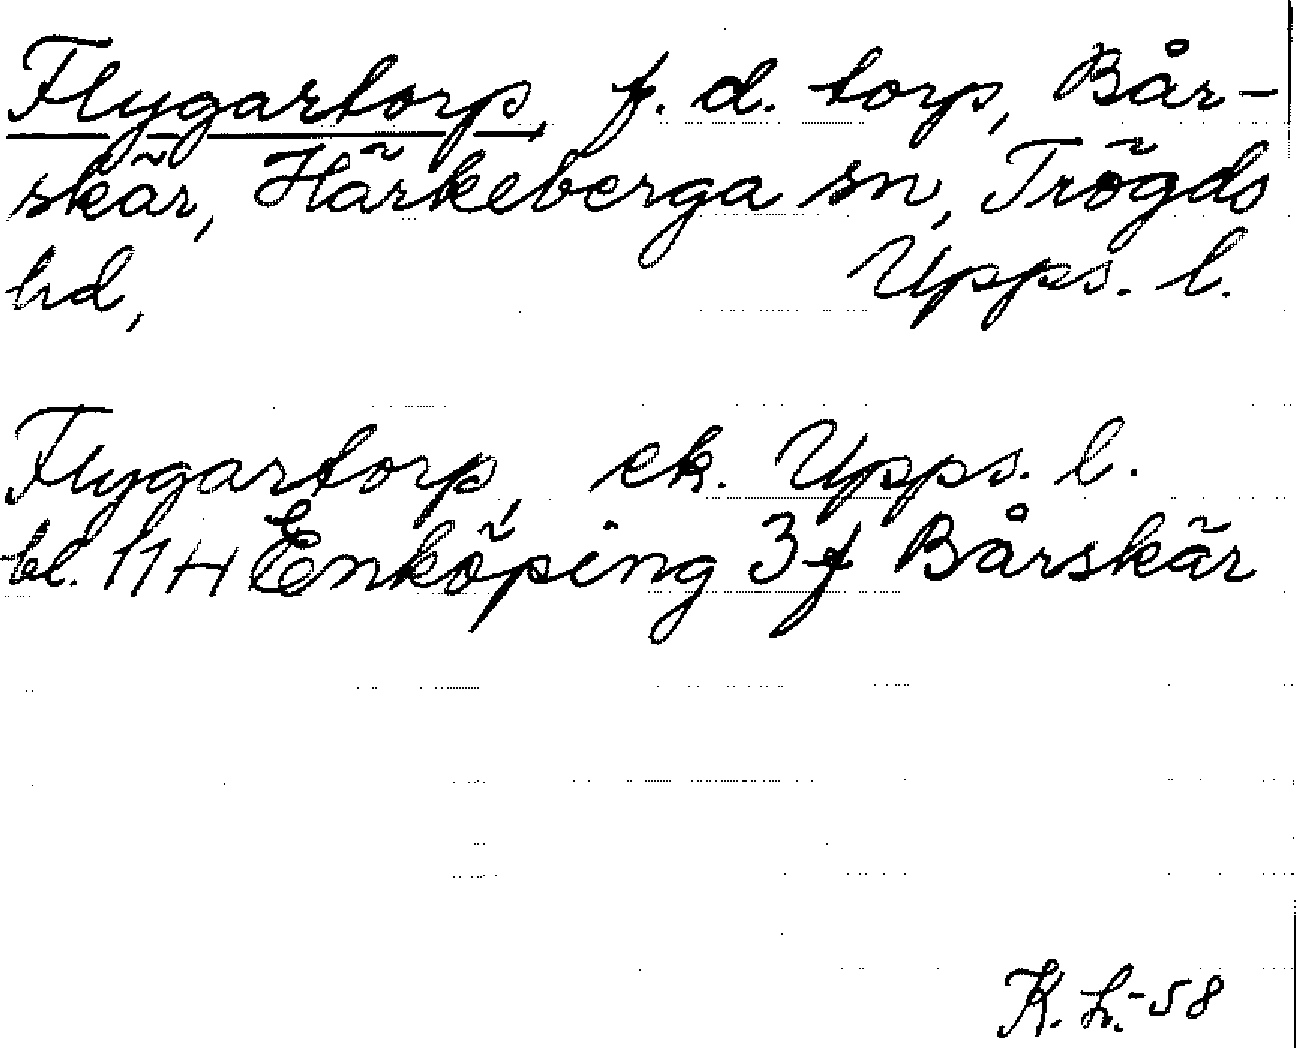 Flygartorp, f. d. torp, Bår-
skär, Härkeberga sn, Trögds
hd, Upps. l.
Flygartorp, ek. Upps. l.
bl. 11H Enköping 3f Bårskär
K. L.-58